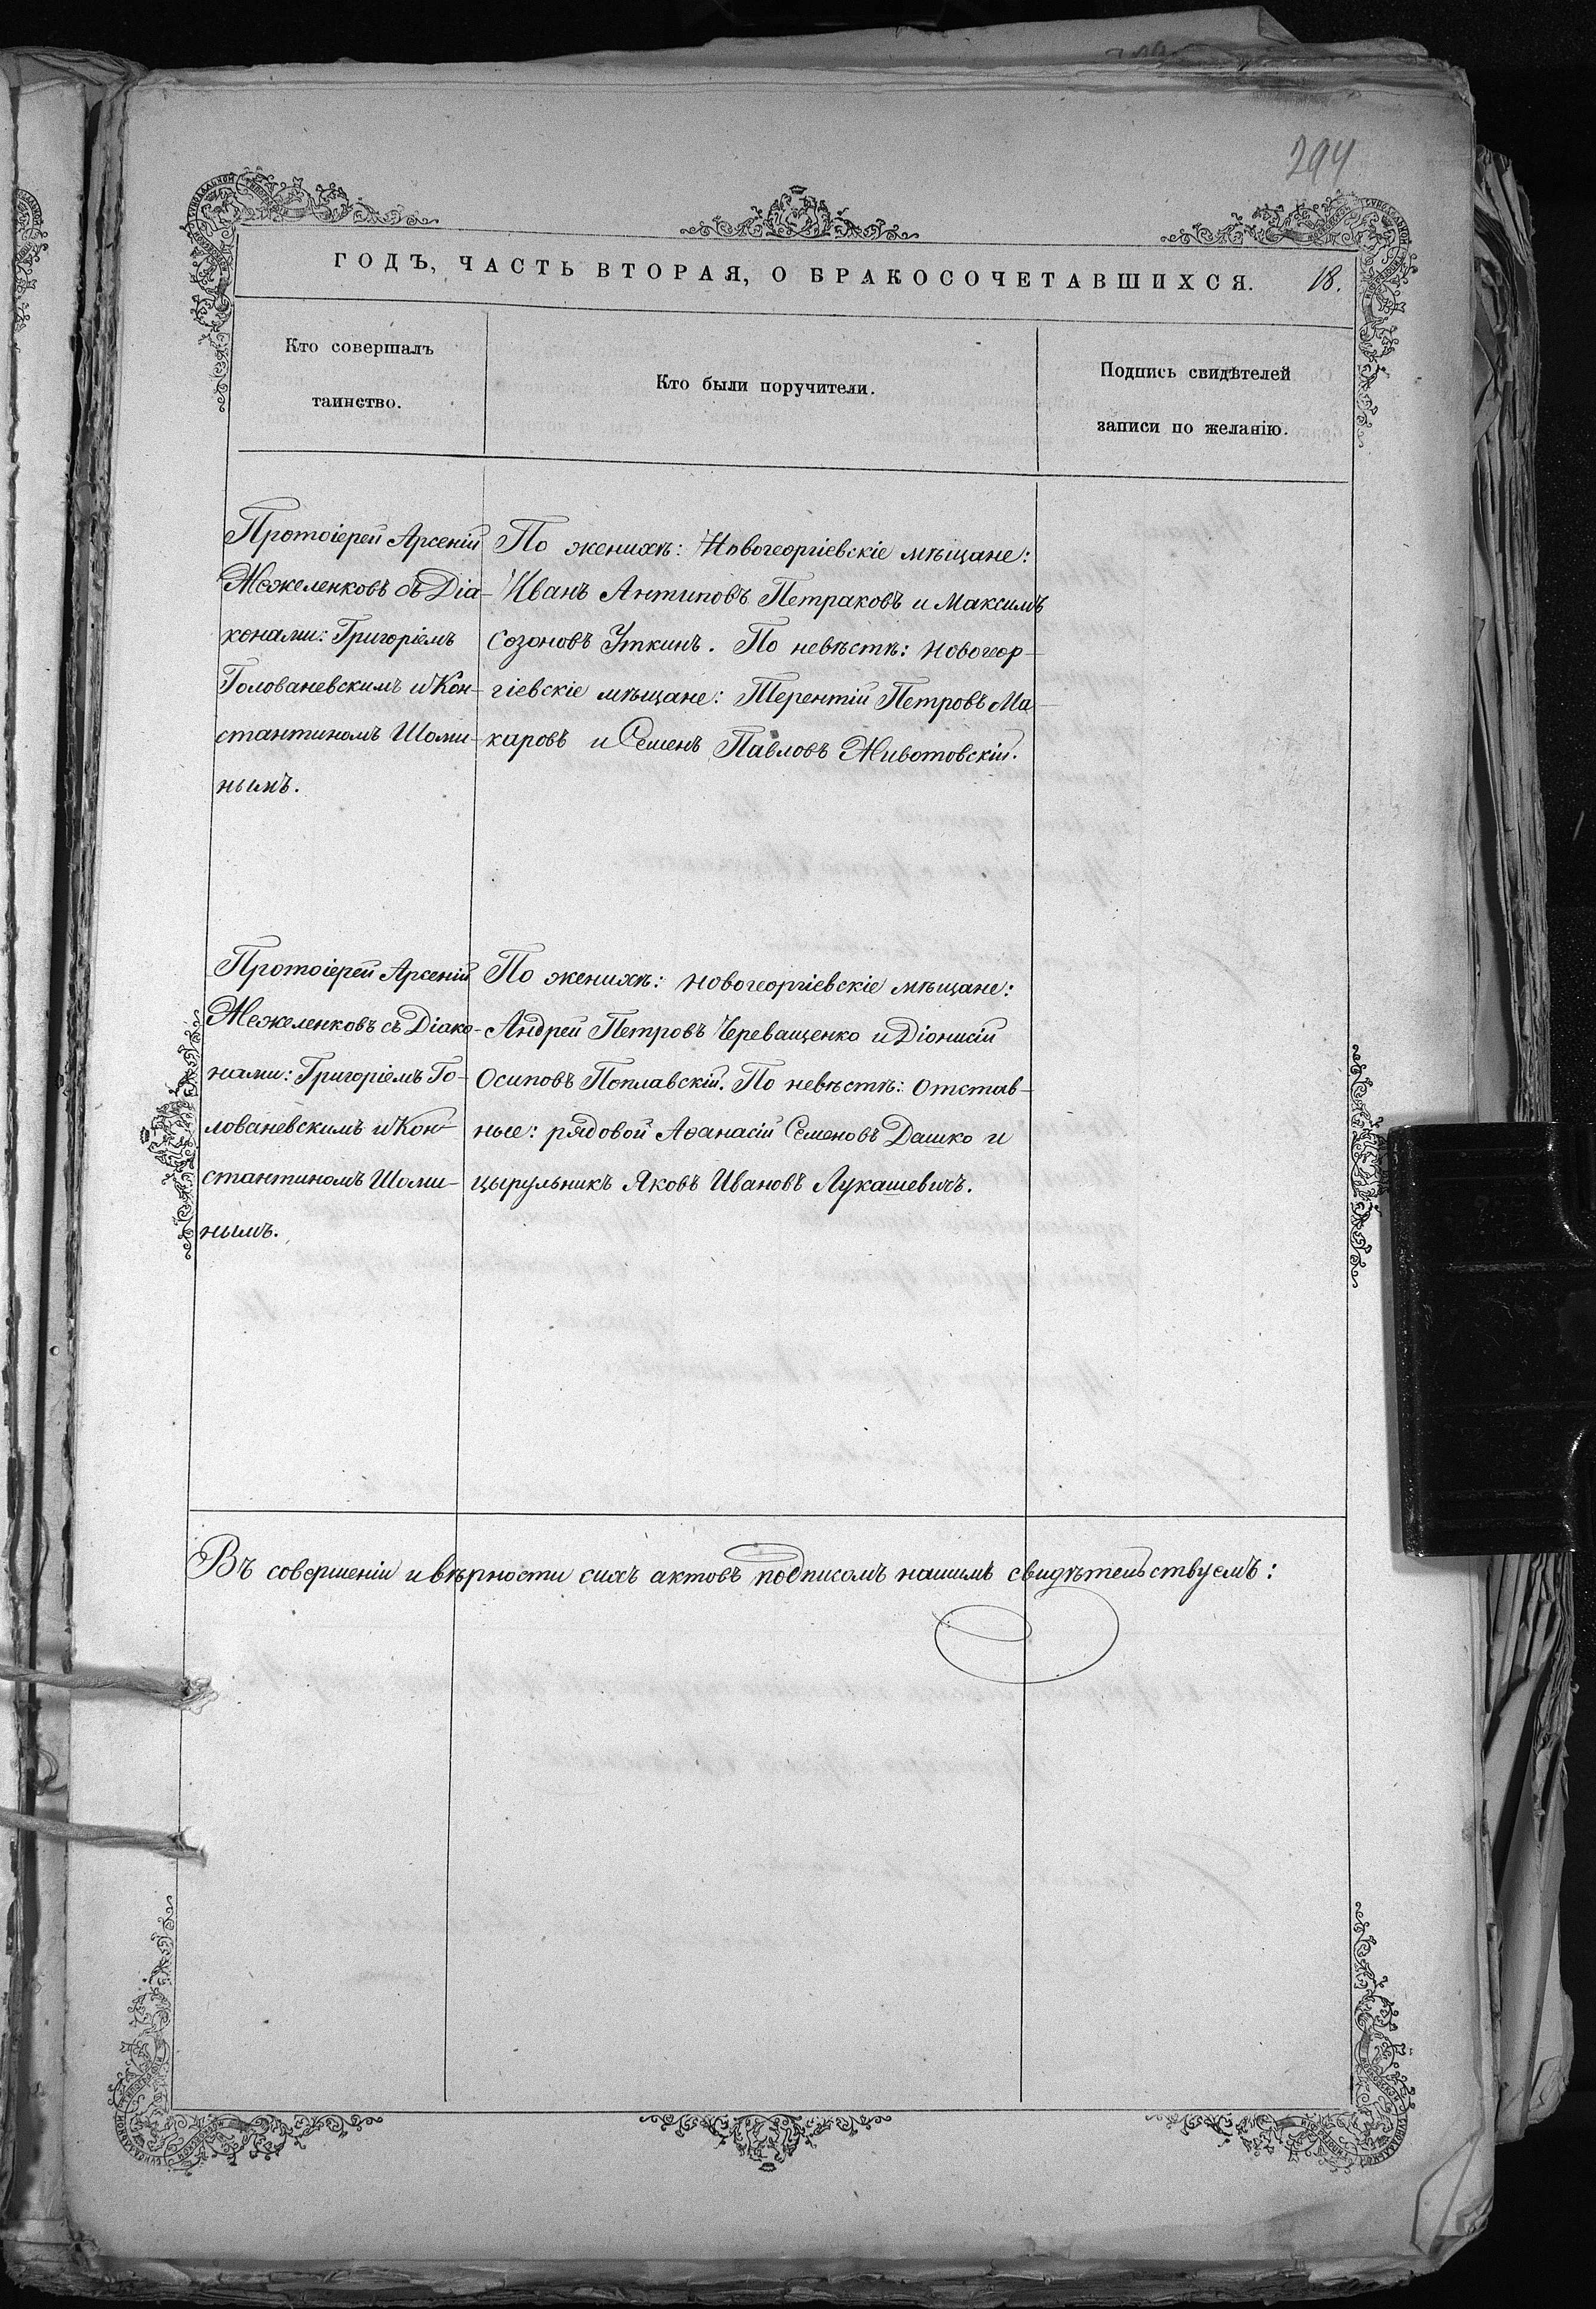 294
ГОДЪ, ЧАСТЬ ВТОРАЯ, О БРАКОСОЧЕТАВШИХСЯ. 18.
Кто совершалъ
таинство.
Кто были поручители.
Подпись свидѣтелей
записи по желанію.
Протоіерей Арсеній
Межеленковъ съ Діа-
конами: Григоріемъ
Голованевскимъ и Кон-
стантиномъ Шоми-
нымъ.
По женихѣ: Новогеоргіевскіе мѣщане:
Иванъ Антиповъ Петраковъ и Максимъ
Созоновъ Уткинъ. По невѣстѣ: Новогеор-
гіевскіе мѣщане: Терентій Петровъ Ма-
каровъ и Семенъ Павловъ Животовскій.
Протоіерей Арсеній
Межеленковъ съ Діако-
нами: Григоріемъ Го-
лованевскимъ и Кон-
стантиномъ Шоми-
нымъ.
По женихѣ: Новогеоргіевскіе мѣщане:
Андрей Петровъ Череващенко и Діонисій
Осиповъ Поплавскій. По невѣстѣ: Отстав-
ные: рядовой Аѳанасій Семеновъ Дашко и
цырульникъ Яковъ Ивановъ Лукашевичъ.
Въ совершеніи и вѣрности сихъ актовъ подписомъ нашимъ свидѣтельствуемъ: